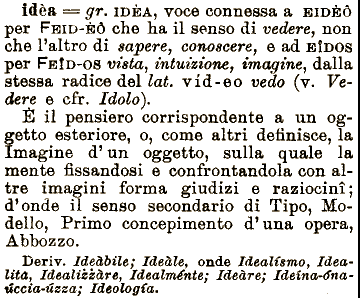 idèa = gr. IDÈA, voce connessa a EIDÉÔ
per FEID-ÈÔ che ha il senso di vedere, non
che l'altro di sapere, conoscere, e ad EÎDOS
per FEÎD-OS vista, intuizione, imagine, dalla
stessa radice del lat. víd-eo vedo (v. Ve-
dere e cfr. Idolo).
È il pensiero corrispondente a un og-
getto esteriore, o, come altri definisce, la
Imagine d'un oggetto, sulla quale la
mente fissandosi e confrontandola con al-
tre imagini forma giudizi e raziocinî;
d'onde il senso secondario di Tipo, Mo-
dello, Primo concepimento d'una opera,
Abbozzo.
Deriv. Ideàbile; Ideàle, onde Idealísmo, Idea-
lità, Idealizzàre, Idealménte; Ideàre; Ideína-óna-
úccia-úzza; Ideología.